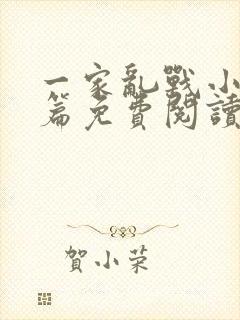 一家亂戰小
篇免費閱讀
賀小荣